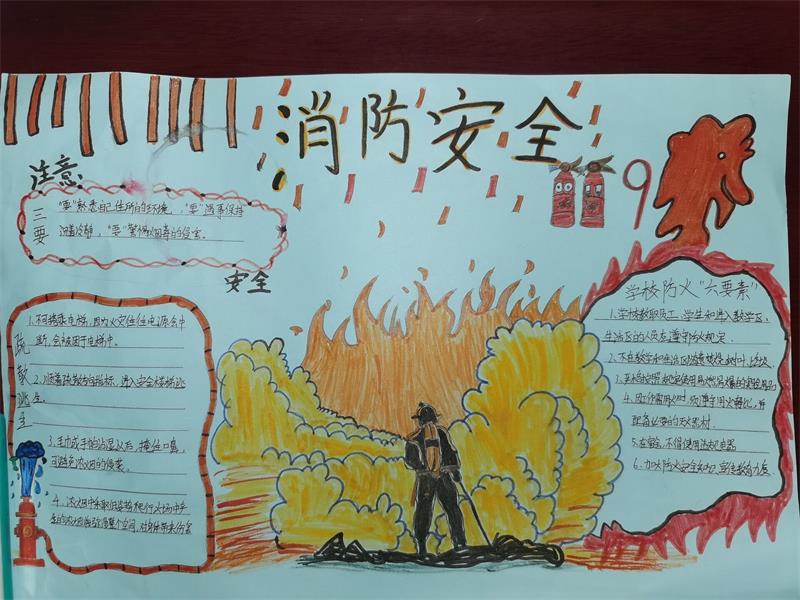 消防安全
注意
三要
"要"熟悉自己住所的环境,"要"遇事保持
沉着冷静,"要"警惕烟毒的侵害。
安全
疏散逃生
1.不可搭乘电梯,因为火灾往往电源会中
断,会被困于电梯中。
2.循着疏散方向指标,进入安全梯梯逃
生。
3.毛巾或手帕沾湿以后,掩住口鼻,
可避免浓烟的侵袭。
4.浓烟中采取低姿势爬行火场中产
生的浓烟
整个空间,对身体带来伤害
9
学校防火"六要素"
1.学校教职员工、学生和进入教学区、
生活区的人员应遵守防火规定。
2.不在教学和生活区焚烧树叶、垃圾。
3.
使用易燃易爆的实验用品
4.因工作需用火时,须遵守用火
,并
配备必要的灭火器材。
5.在宿舍,不得使用
电器
6.加大防火安全知识宣传教育力度。